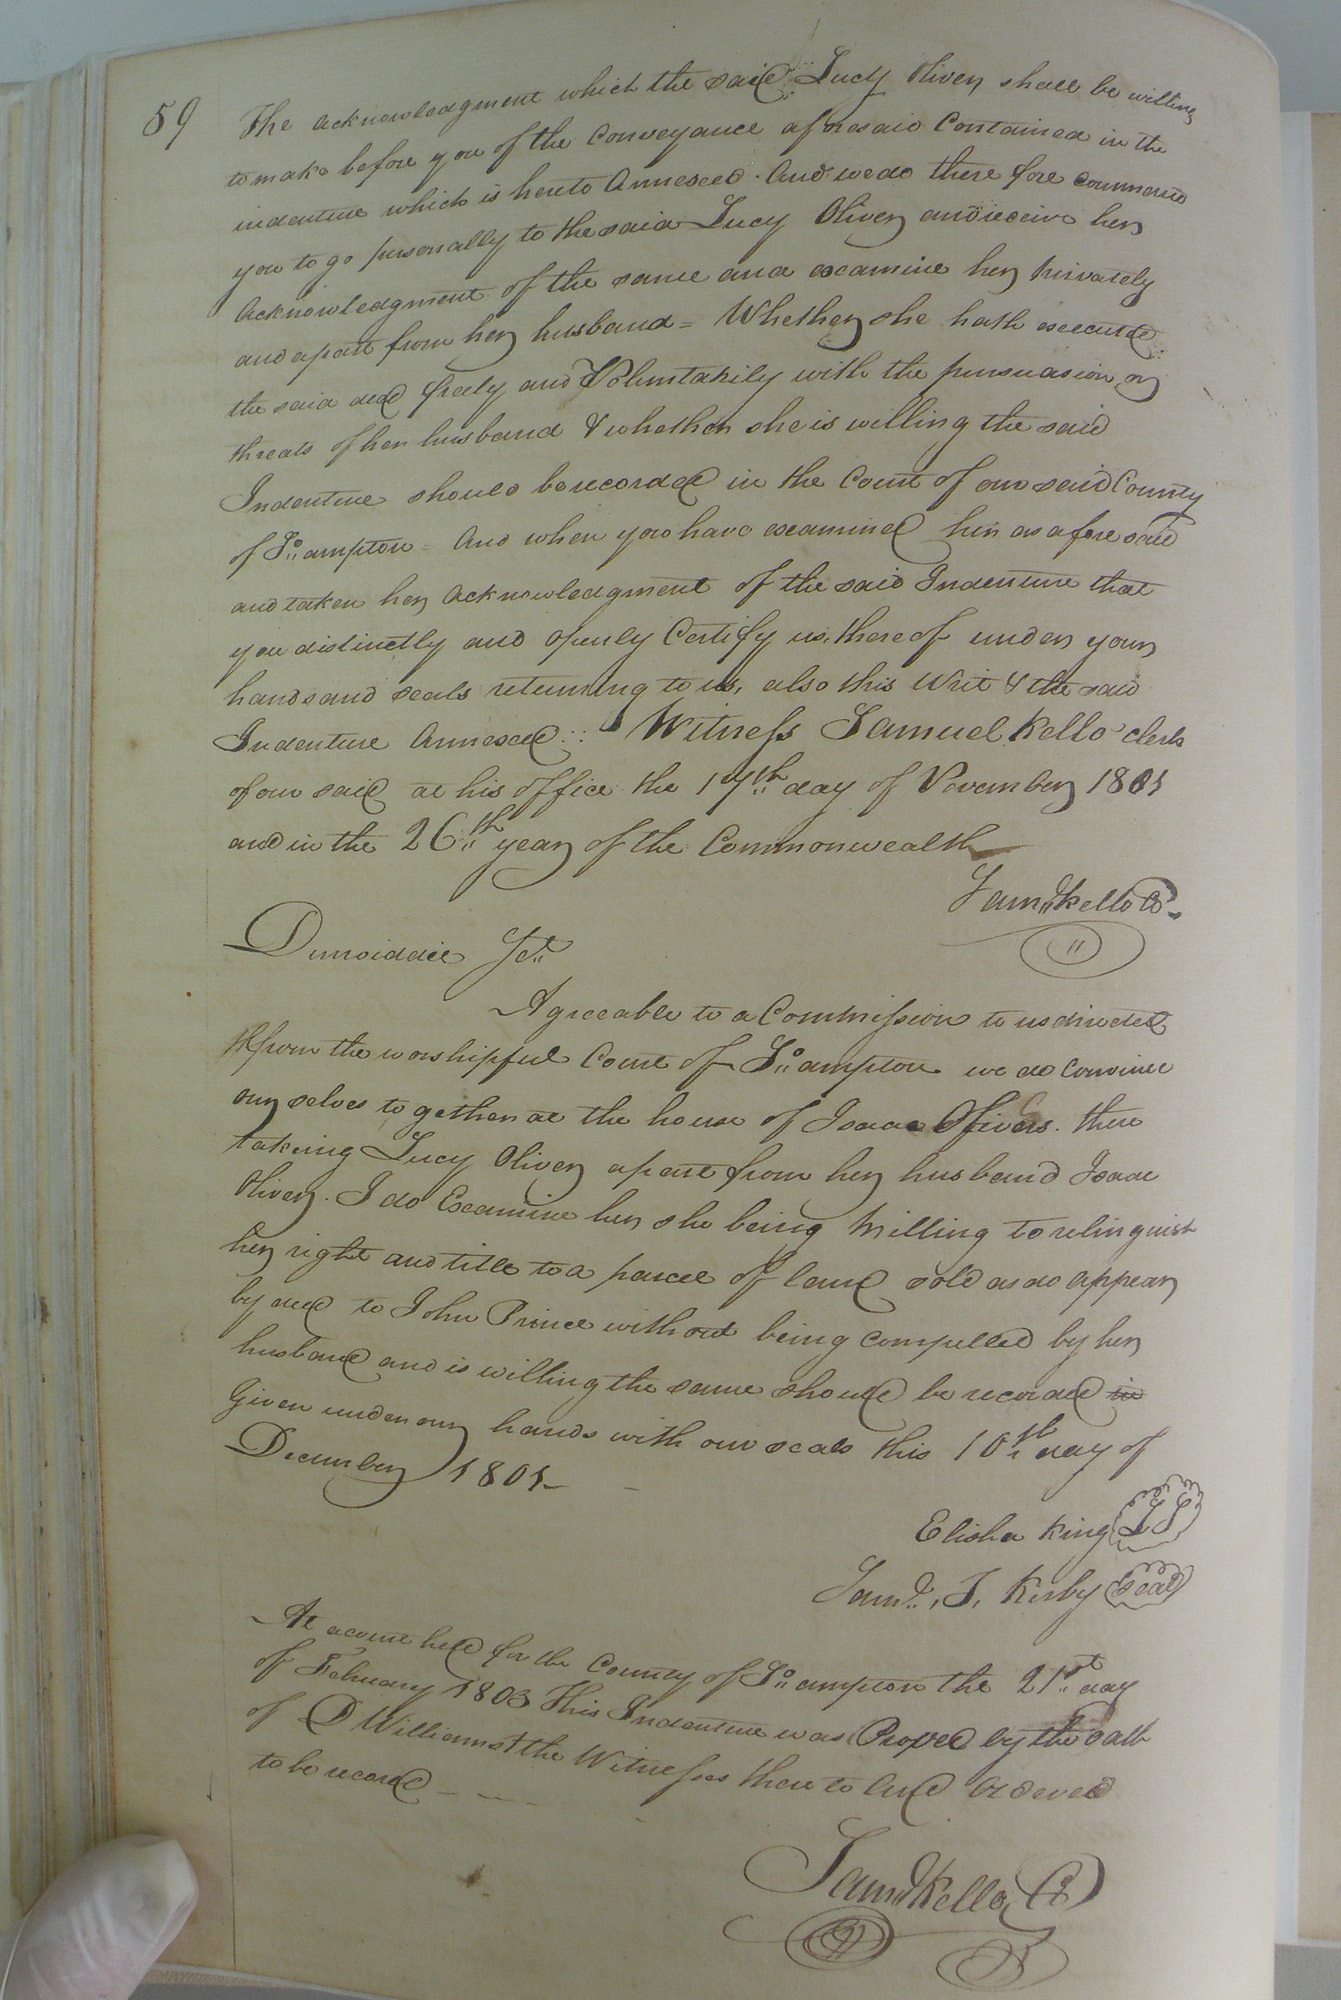 59
The acknowledgment which the said Lucy Oliver shall be willing
to make before you of the Conveyance aforesaid Contained in the
indenture which is hereto Annexed. And we do there fore command
you to go personally to the said Lucy Oliver and receive her
Acknowledgment of the same and examine her privately
and apart from her husband = Whether she hath executed
the said deed freely and Voluntarily with the persuasion or
threats of her husband & whether she is willing the said
Indenture should be recorded in the Court of our said County
of So,,ampton = And when you have examined her as afore said
and taken her acknowledgment of the said Indenture that
you distinctly and openly Certify us, there of under your
hands and seals returning to us, also this Writ & the said
Indenture Annexed :: Witness Samuel Kello clerk
of our said at his office the 17th day of November 1801
and in the 26th year of the Commonwealth
Saml,, Kello Cl
Dinwiddie Sct
Agreeable to a Commission to us directed
from the worshipful Court of So,,ampton we do convince
our selves to gether at the house of Isaac Olivers. there
taking Lucy Oliver apart from her husband Isaac
Oliver. I do Examine her she being Willing to relinguish
her right and title to a parcel of land sold as do appear
by deed to John Prince without being compelled by her
husband and is willing the same should be recorded in
Given under our hands with our seals this 10th day of
December 1801
Elisha King LS
Saml., J, Kirby Seal
At a court held for the County of So,,ampton the 21st day
of February 1803 This Indenture was Proved by the oath
of D Williams the Witnesses there to And Ordered
to be record
Saml Kello, Cl